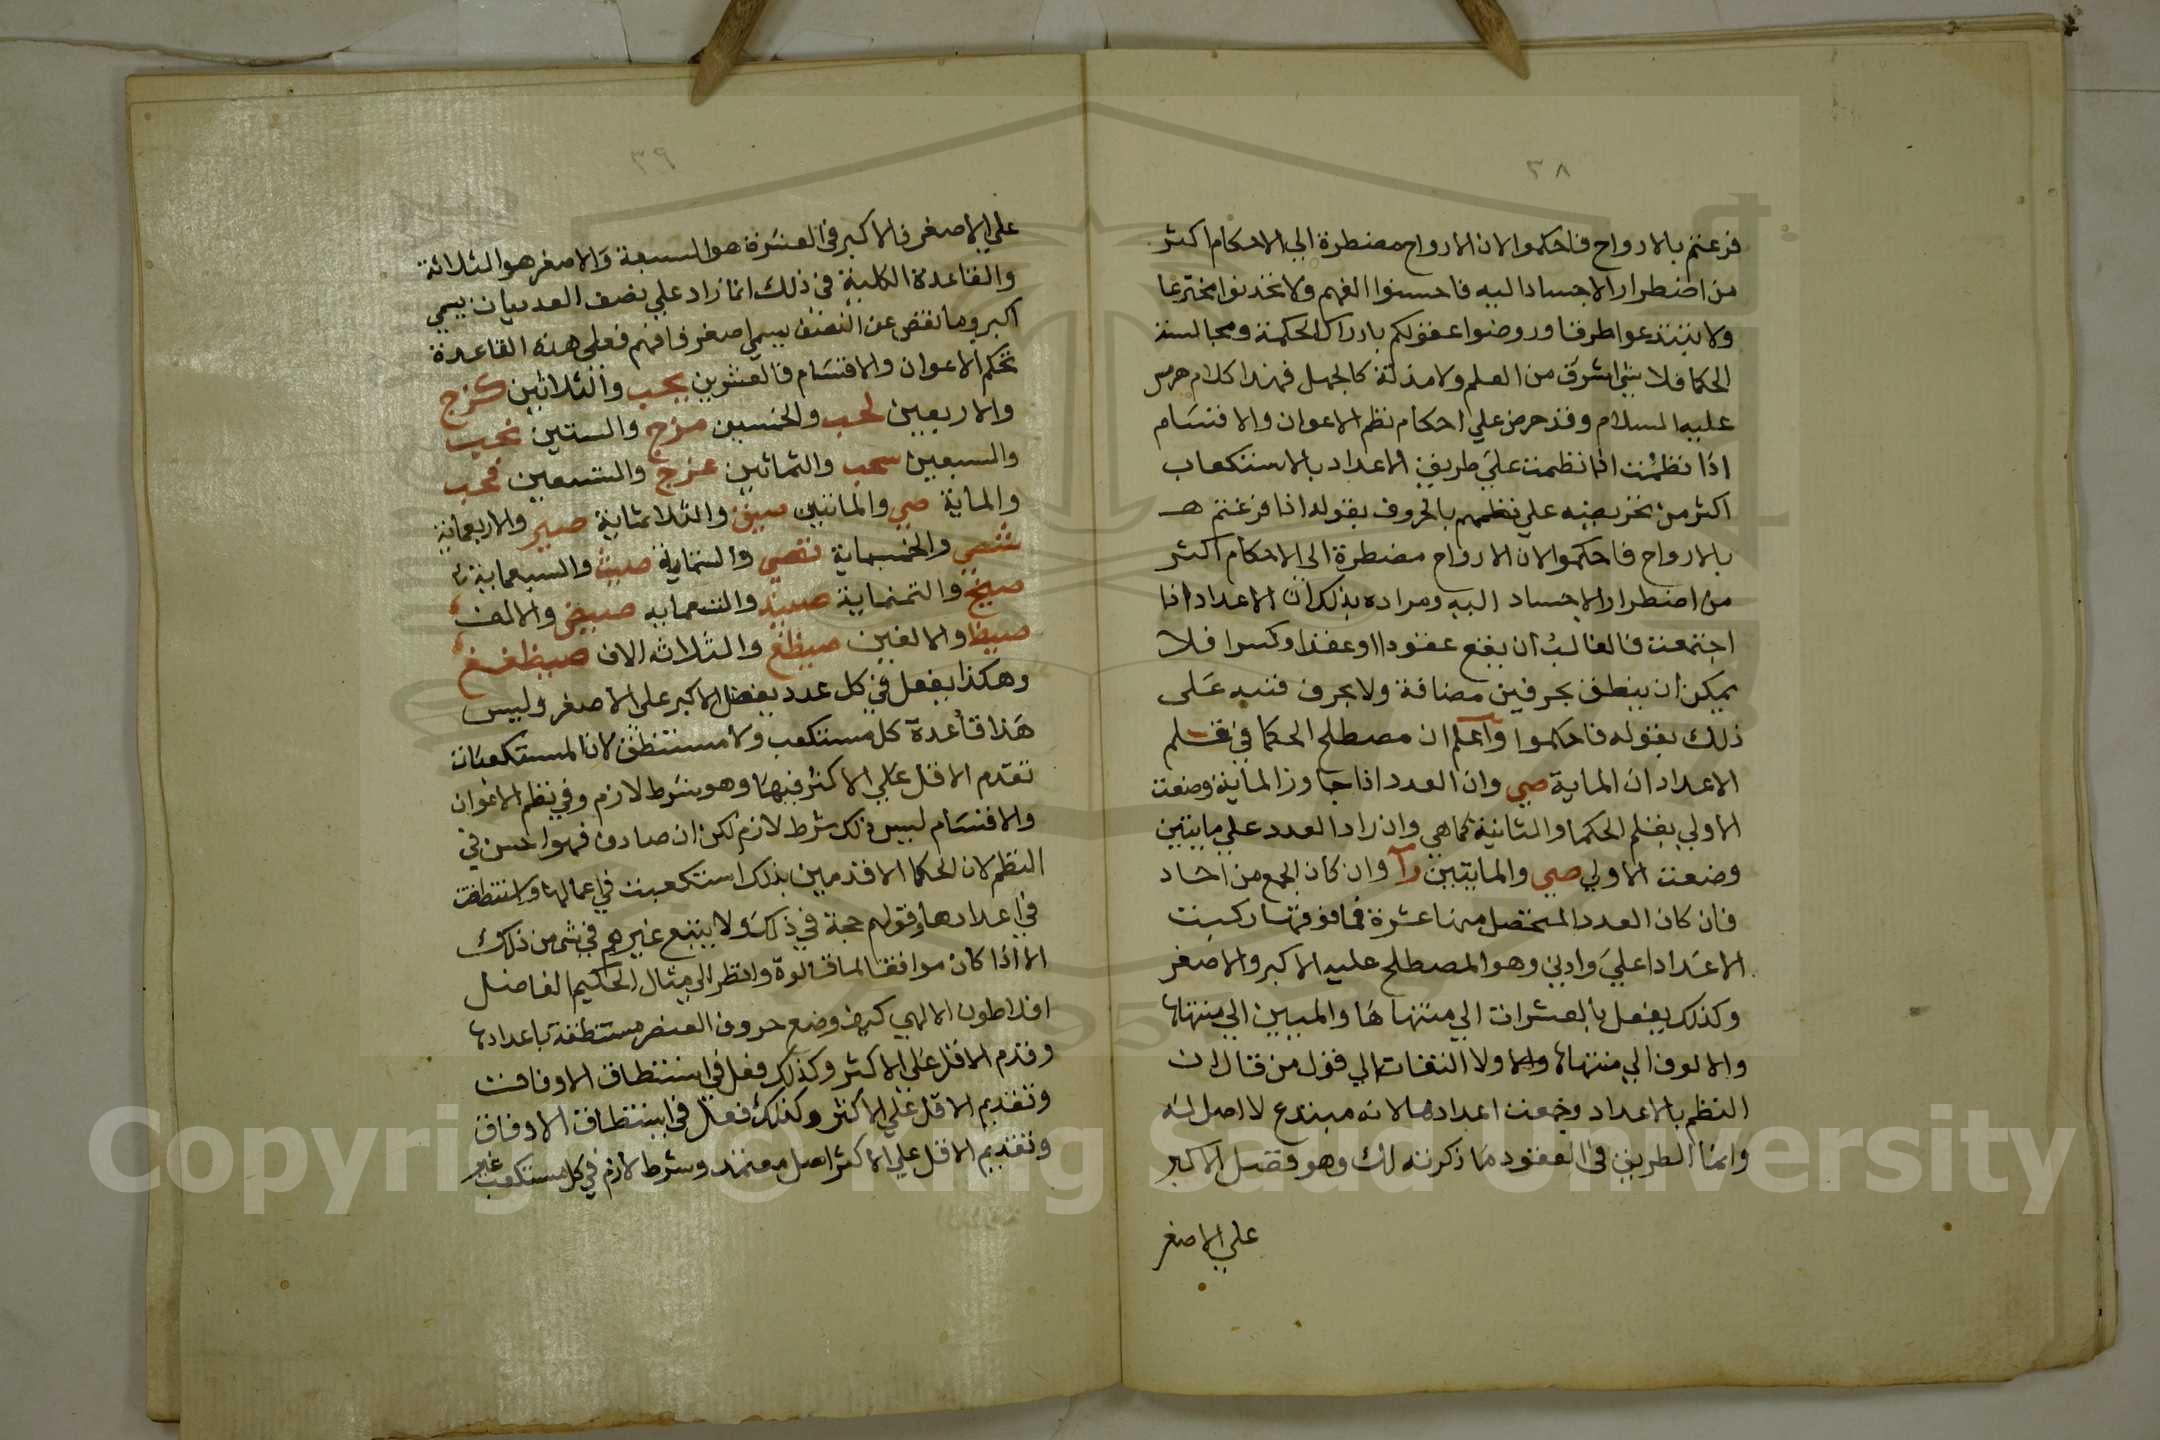 ٣٨
فرغتم بالارواح فاحكموا لان الارواح مضطرة الي الاحكام اكثر
من اضطرار الاجساد اليه فاحسنوا الفهم ولا تخذلوا مخترعا
ولا تبتدعوا طرقا وروضوا عقولكم بادراك الحكمة ومجالسة
الحكما فلا شي اشرف من العلم ولا مذلة كالجهل فهذا كلام هرمس
عليه السلام وقد حرض علي احكام نظم الاعوان والاقسام
اذا نظمت اذا نظمت علي طريق الاعداد بالاستكعاب
اكثر من تحريضه علي نظمهم بالحروف بقوله اذا فرغتم
بالارواح فاحكموا لان الارواح مضطرة الي الاحكام اكثر
من اضطرار الاجساد اليه ومراده بذلك ان الاعداد اذا
اجتمعت فالغالب ان يقع عقودا او عقدا وكسرا فلا
يمكن ان ينطق بحرفين مضافة ولا بحرف فنبه علي
ذلك بقوله فاحكموا واعلم ان مصطلح الحكما في نظم
الاعداد ان الماية صي وان العدد اذا جاوز الماية وضعت
الاولي بقلم الحكما والثانية كما هي وان زاد العدد علي مايتين
وضعت الاولي صي والمايتين را وان كان الجمع من احاد
فان كان العدد المتحصل منها عشرة فما فوقها ركبت
الاعداد اعلي وادني وهو المصطلح عليه الاكبر والاصغر
وكذلك يفعل بالعشرات الي منتهاها والميين الي منتهاها
والالوف الي منتهاها ولا التفات الي قول من قال ان
النظم بالاعداد وجمعت اعدادها لانه مبتدع لا اصل له
وانما الطريق في العقود ما ذكرته لك وهو فضل الاكبر
علي الاصغر
٣٩
علي الاصغر فالاكبر في العشرة هو السبعة والاصغر هو الثلاثة
والقاعدة الكلية في ذلك انما زاد علي نصف العدد بان يسمي
اكبر وما نقص عن النصف يسمي اصغر فافهم فعلي هذه القاعدة
تحكم الاعوان والاقسام فالعشرين يحب والثلاثين كزج
والاربعين لحب والخمسين مزج والستين نحب
والسبعين سحب والثمانين عزج والتسعين فحب
والماية صي والماتين صيق والثلاثماية صير والاربعماية
شصي والخمسماية تقصي والستماية صيث والسبعماية
صيخ والتمنماية صيذ والتسعمايه صيض والالف
صيظ والالفين صيظغ والثلاثه الاف صيظغغ
وهكذا يفعل في كل عدد يفضل الاكبر علي الاصغر وليس
هذا قاعدة كل مستكعب ولا مستنطق لان المستكعبات
تقدم الاقل علي الاكثر فيها وهو شرط لازم وفي نظم الاعوان
والاقسام ليس ذلك شرط لازم لكن ان صادف فهو احسن في
النظم لان الحكما الاقدمين بذلك استكعبت في اعمالها واستنطقت
في اعدادها وقولهم حجة في ذلك ولا يتبع غيرهم في شي من ذلك
الا اذا كان موافقا لما قالوه وانظر الي مثال الحكيم الفاضل
افلاطون الالهي كيف وضع حروف العنصر مستنطقة باعدادها
وقدم الاقل علي الاكثر وكذلك فعل في استنطاق الاوفاق
وتقديم الاقل علي الاكثر وكذلك فعل في استنطاق الاوفاق
وتقديم الاقل علي الاكثر اصل معتمد وشرط لازم في كل مستكعب غير
Copyright © King Saud University